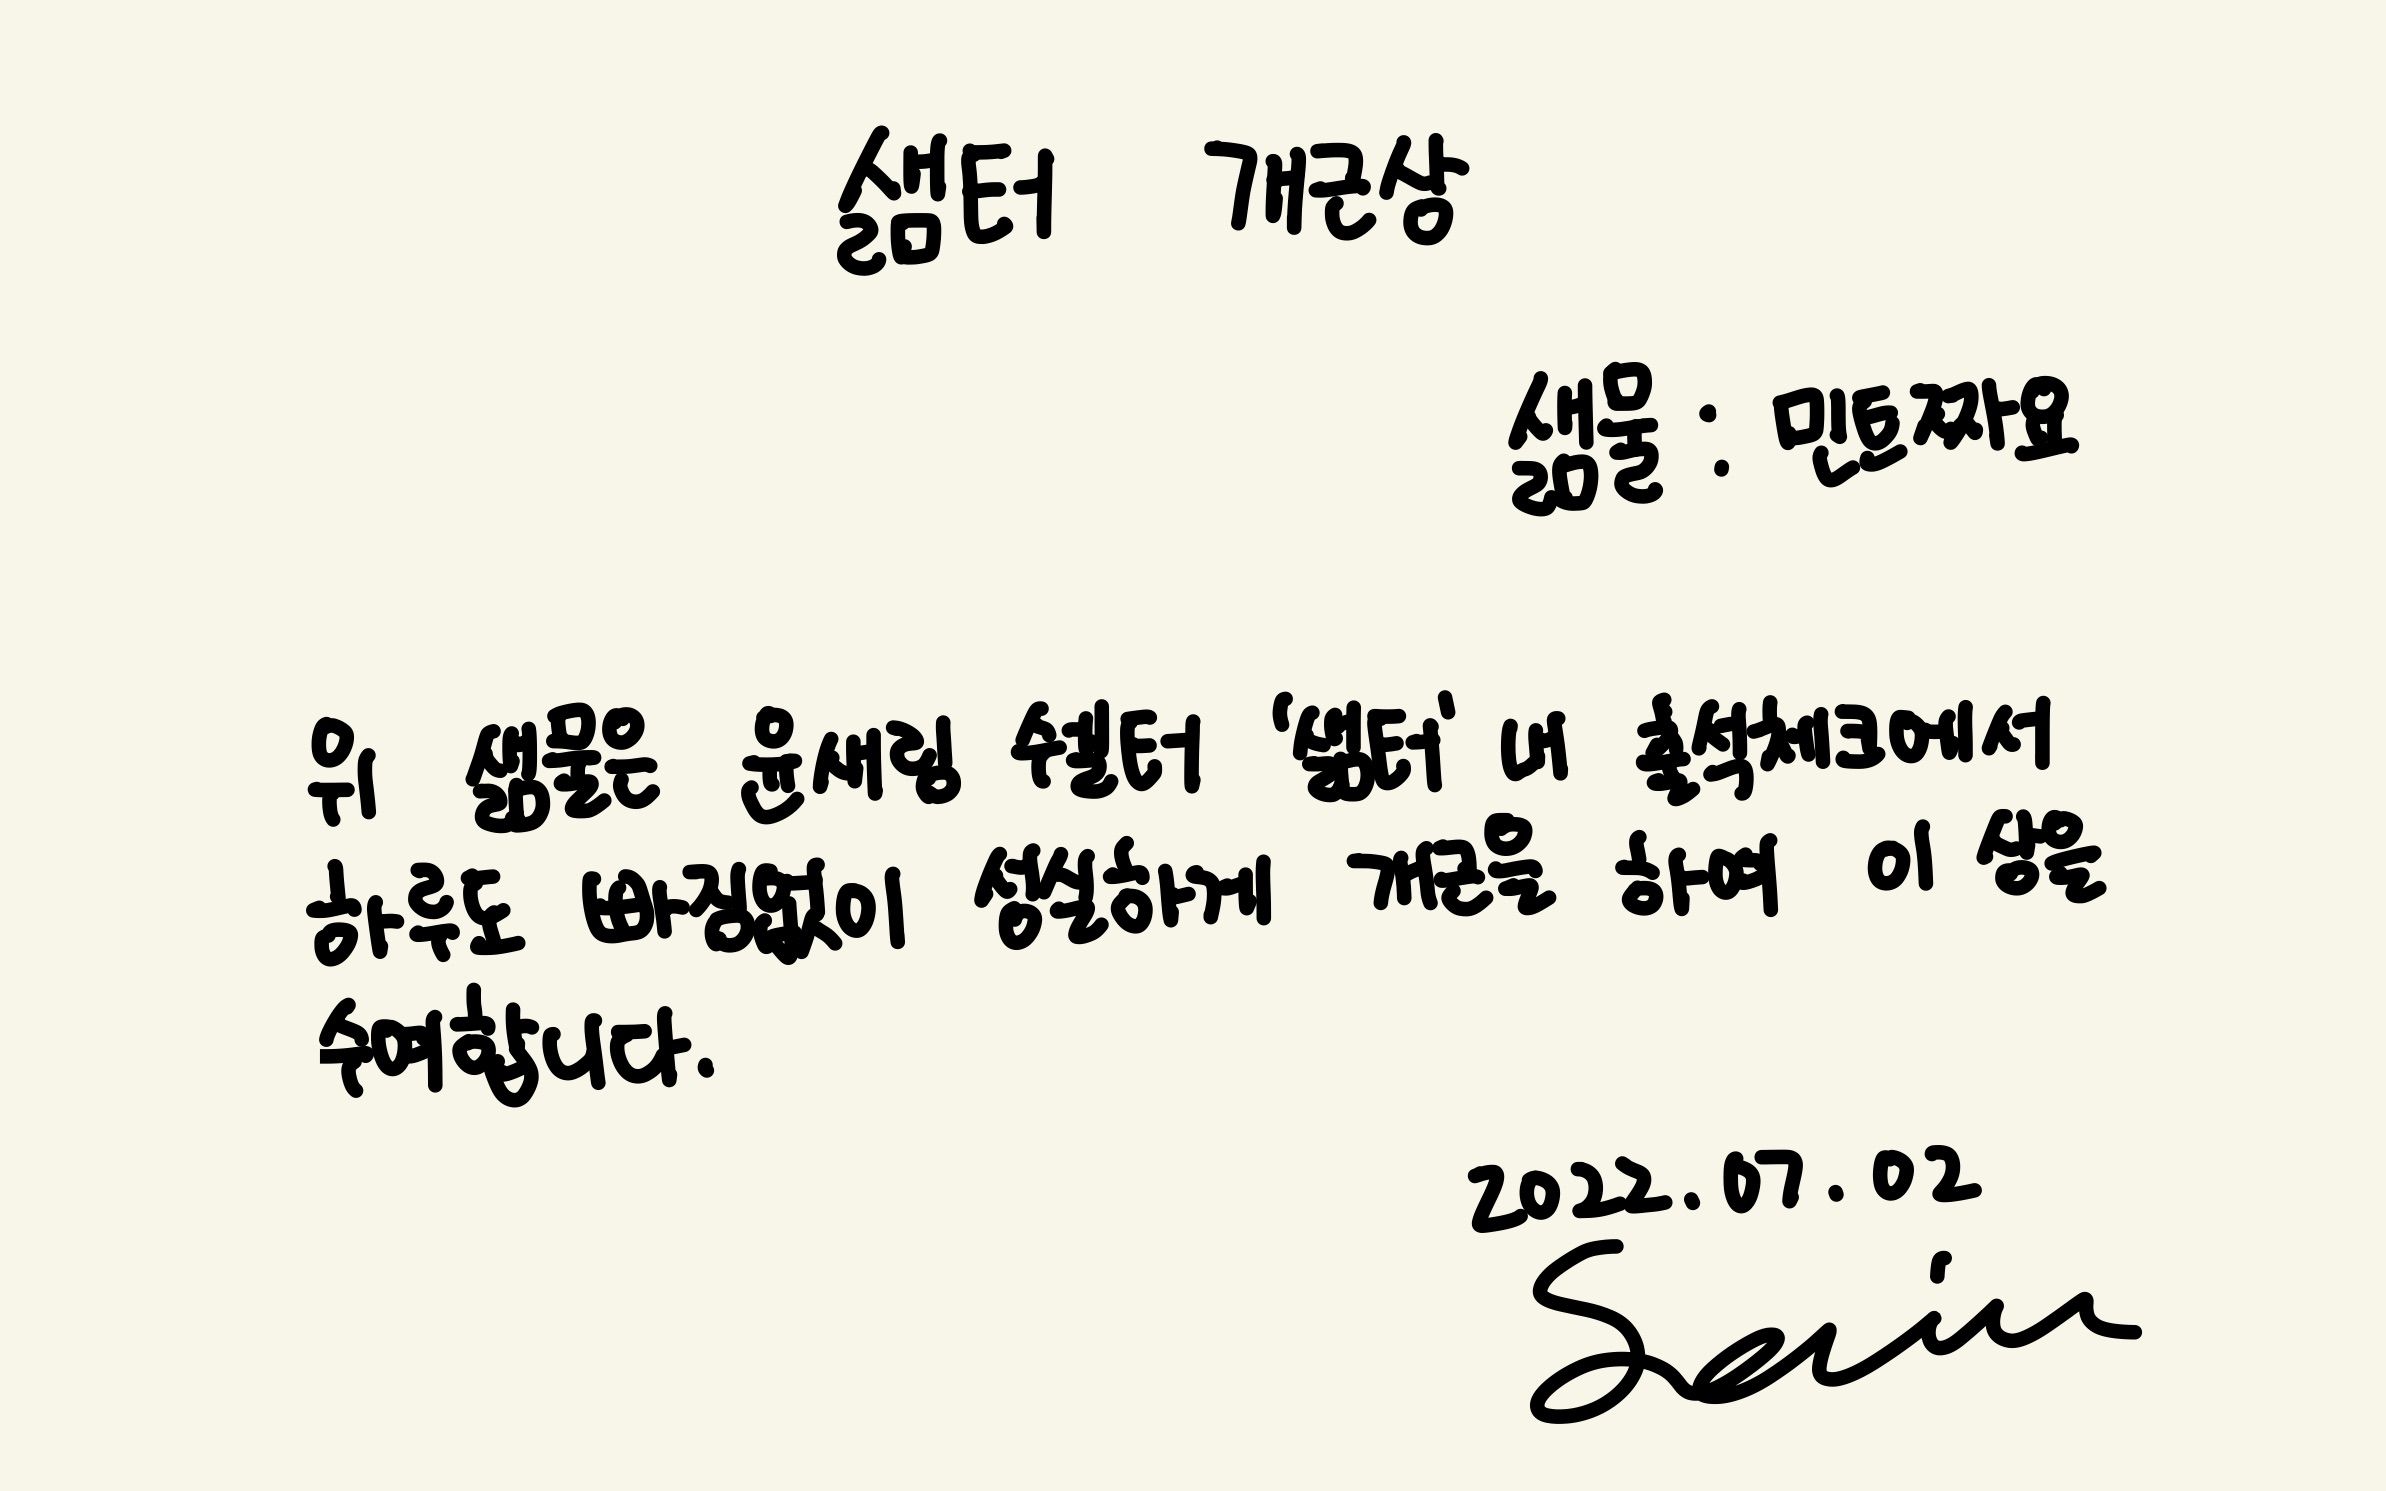 샒터 개근상
샒물 : 민트짜요
위 샒물은 윤세잉 쉘터 '샒터' 내 출석체크에서
하루도 빠짐없이 성실하게 개근을 하여 이 상을
수여합니다.
2022.07.02
Sein